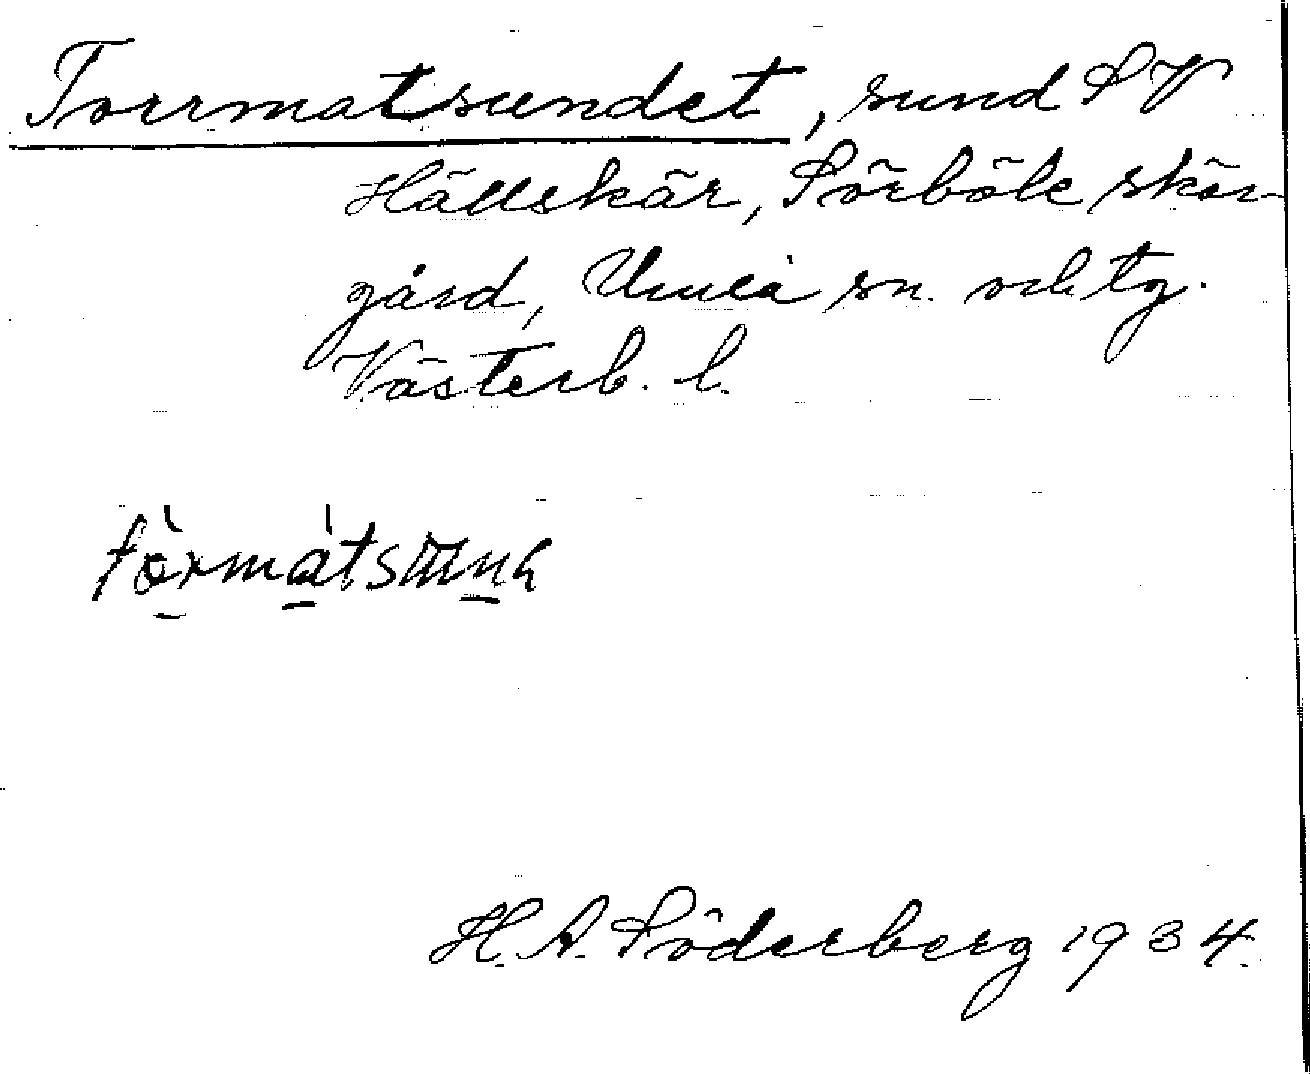 Torrmatsundet, sund SV
Hällskär, Sörböle skär-
gård, Umeå sn. och tg.
Västerb. l.
H. A. Söderberg 1934.